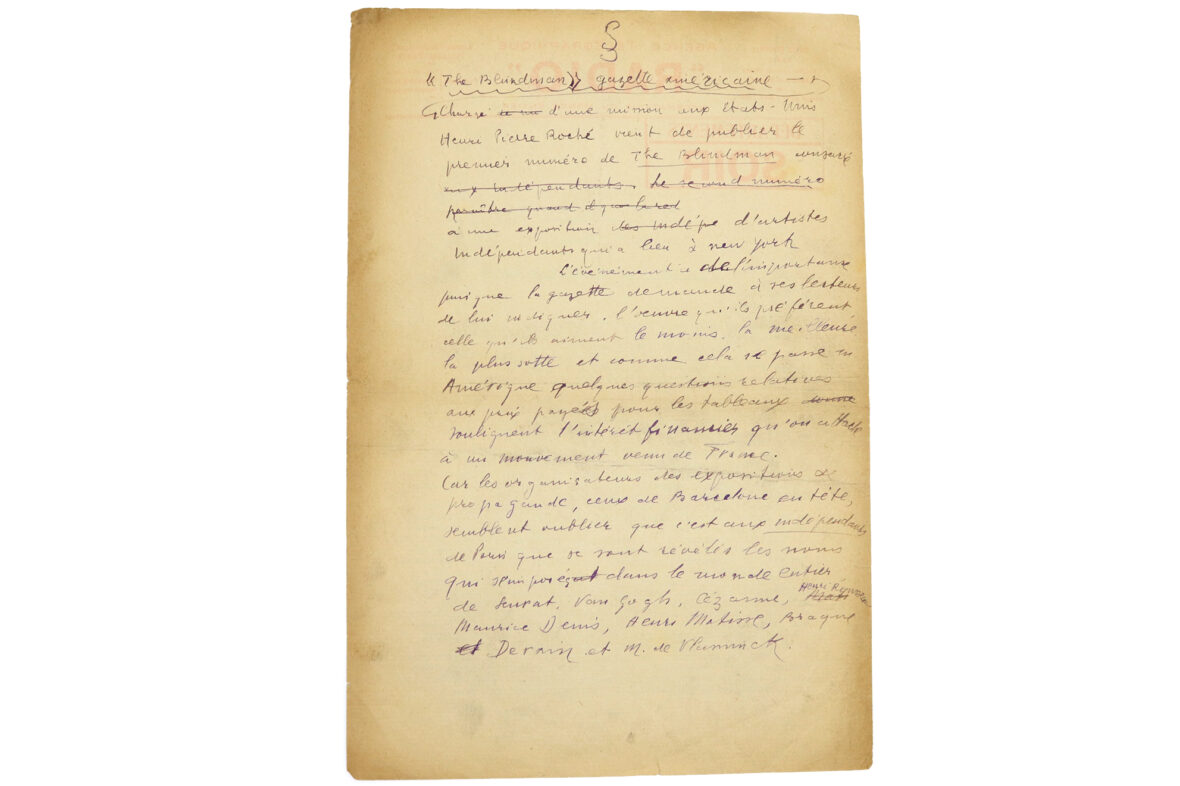 §
« The Blindman » gazette américaine —
Chargé d'une mission aux Etats-Unis
Henri Pierre Roché vient de publier le
premier numéro de The Blindman consacré
aux Indépendants. Le second numéro
paraître quand
à une exposition des indépe d'artistes
Indépendants qui a lieu à new york
L'événement a de l'importance
puisque la gazette demande à ses lecteurs
de lui indiquer, l'oeuvre qu'ils préfèrent
celle qu'ils aiment le moins, la meilleure
la plus sotte et comme cela se passe en
Amérique quelques questions relatives
aux prix payés pour les tableaux donne
soulignent l'intérêt financier qu'on attache
à un mouvement venu de France.
Car les organisateurs des expositions de
propagande, ceux de Barcelone en tête,
semblent oublier que c'est aux indépendants
de Paris que se sont révélés les noms
qui dans le monde entier
de Seurat, Van Gogh, Cézanne, Henri Rousseau
Maurice Denis, Henri Matisse, Braque
et Derain et M. de Vlaminck.
RADIO
SOIR